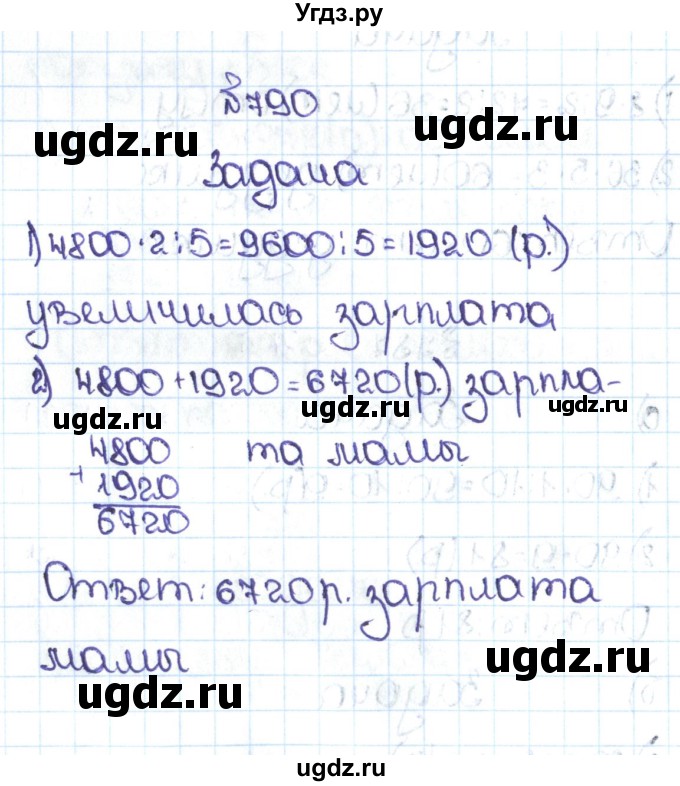 Угдз.ру
№790
ugdz.ru
ugdz.ru
Задача
1) 4800·2:5=9600:5=1920 (р.)
увеличилась зарплата
2) 4800+1920=6720(р.) зарпла-
ugdz.ru
ugdz.ru
ugdz.ru
4800 та мамы
+
1920
6720
Ответ: 6720р. зарплата
мамы
ugdz.ru
ugdz.ru
ugdz.ru